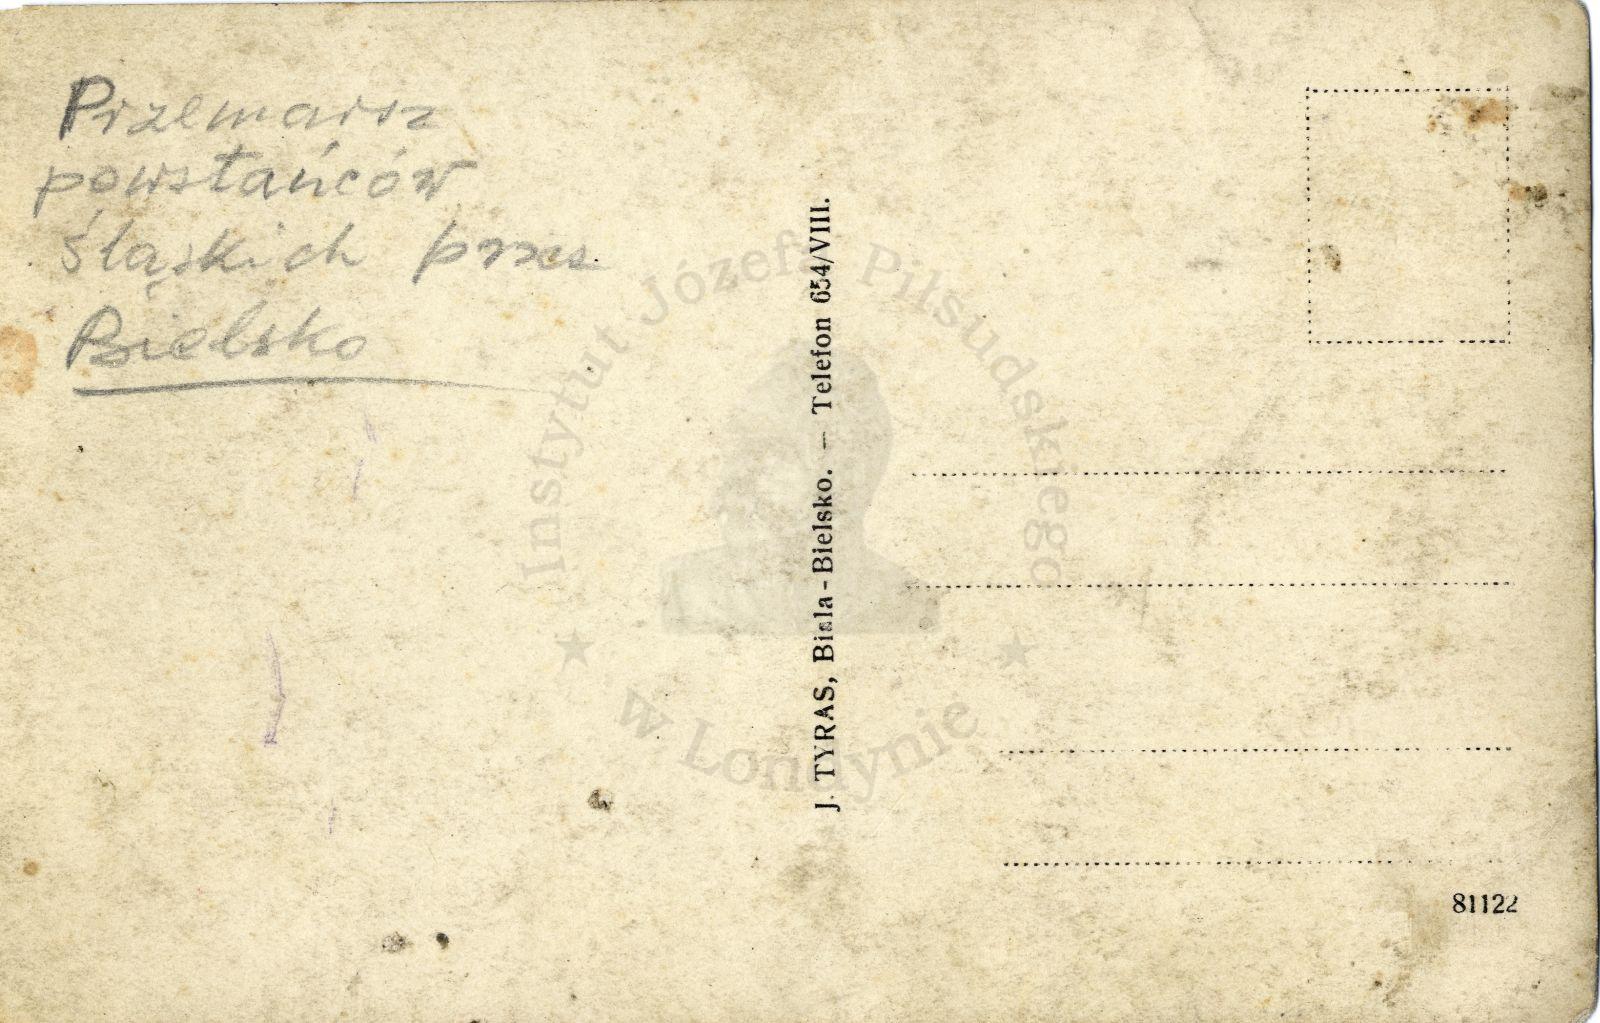 Przemarsz
powstańców
śląskich przez
Bielsko
J. TYRAS, Biala-Bielsko. — Telefon 654/VIII.
81122
Instytut Józefa Piłsudskiego
w Londynie